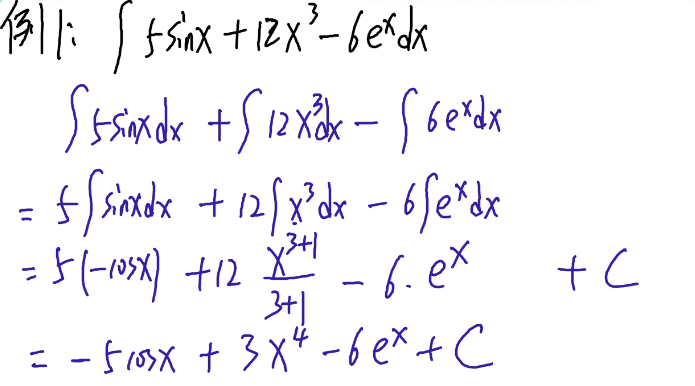 例1: ∫ 5sinx + 12x³ - 6eˣdx
∫5sinxdx + ∫12x³dx - ∫6eˣdx
= 5∫sinxdx + 12∫x³dx - 6∫eˣdx
= 5(-cosx) + 12 x³⁺¹/3+1 - 6·eˣ + C
= -5cosx + 3x⁴ - 6eˣ + C